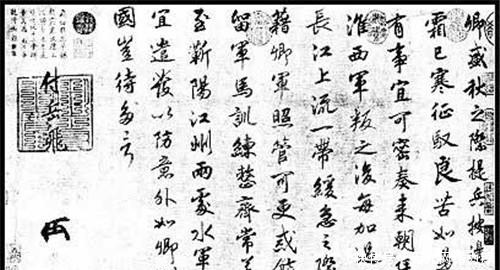 卿盛秋之際提兵按
霜已寒征馭良苦如
有事宜可密奏来朝
淮西軍叛之後每加
長江上流一帶緩急之際
藉卿軍照管可更戒
留軍馬訓練整齊常
至蘄陽江州兩處水軍
宜遣發以防意外如卿
國豈待多言
付岳飛